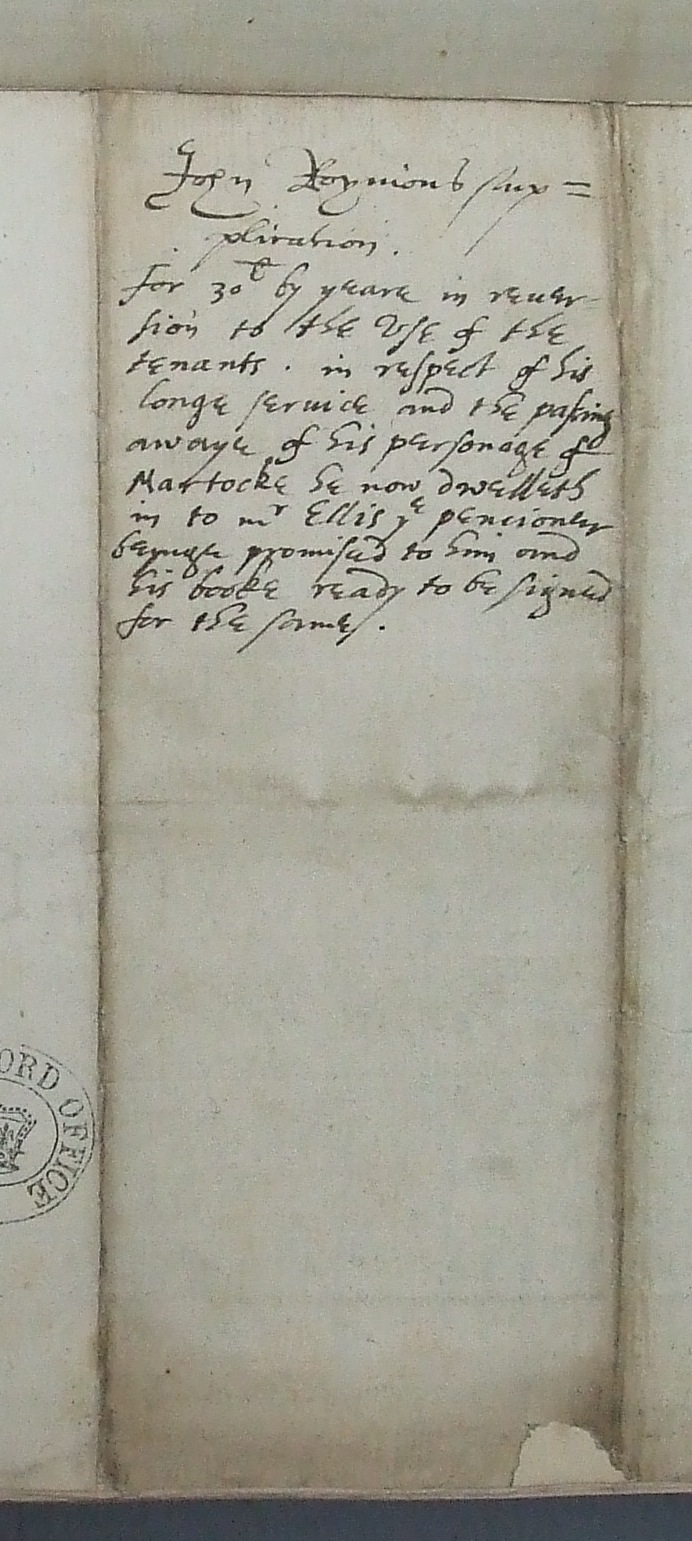 John Roymons sup=
plication.
for 30li by yeare in rever-
sion to the Use of the
tenants. in respect of his
longe service and the passing
awaye of his personage of
Martocke he now dwelleth
in to mr Ellis ye pencioner
beynge promised to him and
his booke ready to be signed
for the same.
ORD OFFICE